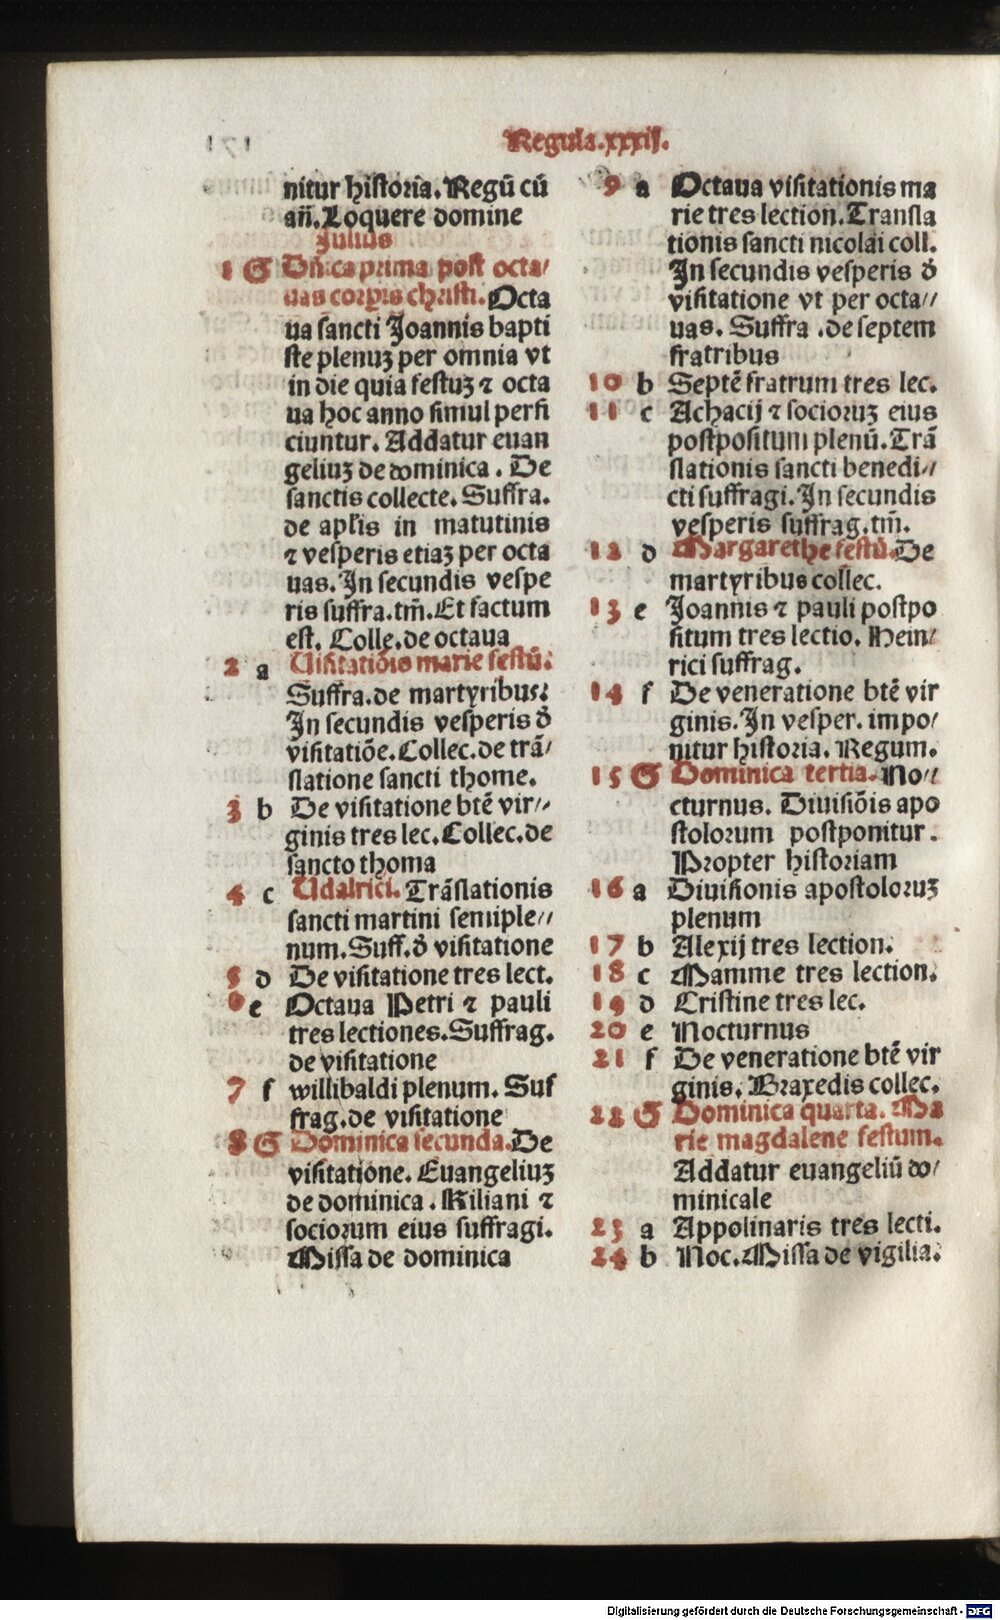 Regula.xxxij.
nitur historia. Regū cū
añ. Loquere domine
Julius
1 G Dñica prima post octa/
uas corpis christi. Octa
ua sancti Joannis bapti
ste plenuꝫ per omnia vt
in die quia festuꝫ ⁊ octa
ua hoc anno simul perfi
ciuntur. Addatur euan
geliuꝫ de dominica. De
sanctis collecte. Suffra.
de aplis in matutinis
⁊ vesperis etiaꝫ per octa
uas. In secundis vespe
ris suffra.tm̄. Et factum
est. Colle. de octaua
2 a Uisitatiōis marie festū.
Suffra. de martyribus:
In secundis vesperis ð
visitatiōe. Collec. de trā/
slatione sancti thome.
3 b De visitatione btē vir//
ginis tres lec. Collec. de
sancto thoma
4 c Udalrici. Trāslationis
sancti martini semiple//
num. Suff. ð visitatione
5 d De visitatione tres lect.
6 e Octaua Petri ⁊ pauli
tres lectiones. Suffrag.
de visitatione
7 f willibaldi plenum. Suf
frag. de visitatione
8 G Dominica secunda. De
visitatione. Euangeliuꝫ
de dominica. Kiliani ⁊
sociorum eius suffragi.
Missa de dominica
9 a Octaua visitationis ma
rie tres lection. Transla
tionis sancti nicolai coll.
In secundis vesperis ð
visitatione vt per octa//
uas. Suffra. de septem
fratribus
10 b Septē fratrum tres lec.
11 c Achacij ⁊ socioruꝫ eius
postpositum plenū. Trā
slationis sancti benedi//
cti suffragi. In secundis
vesperis suffrag. tm̄.
12 d Margarethe festū. De
martyribus collec.
13 e Joannis ⁊ pauli postpo
situm tres lectio. Hein/
rici suffrag.
14 f De veneratione btē vir
ginis. In vesper. impo/
nitur historia. Regum.
15 G Dominica tertia. No//
cturnus. Diuisiōis apo
stolorum postponitur.
Propter historiam
16 a Diuisionis apostoloruꝫ
plenum
17 b Alexij tres lection.
18 c Mamme tres lection.
19 d Cristine tres lec.
20 e Nocturnus
21 f De veneratione btē vir
ginis. Braxedis collec.
22 G Dominica quarta. Ma
rie magdalene festum.
Addatur euangeliū do/
minicale
23 a Appolinaris tres lecti.
24 b Noc. Missa de vigilia.
Digitalisierung gefördert durch die Deutsche Forschungsgemeinschaft - DFG